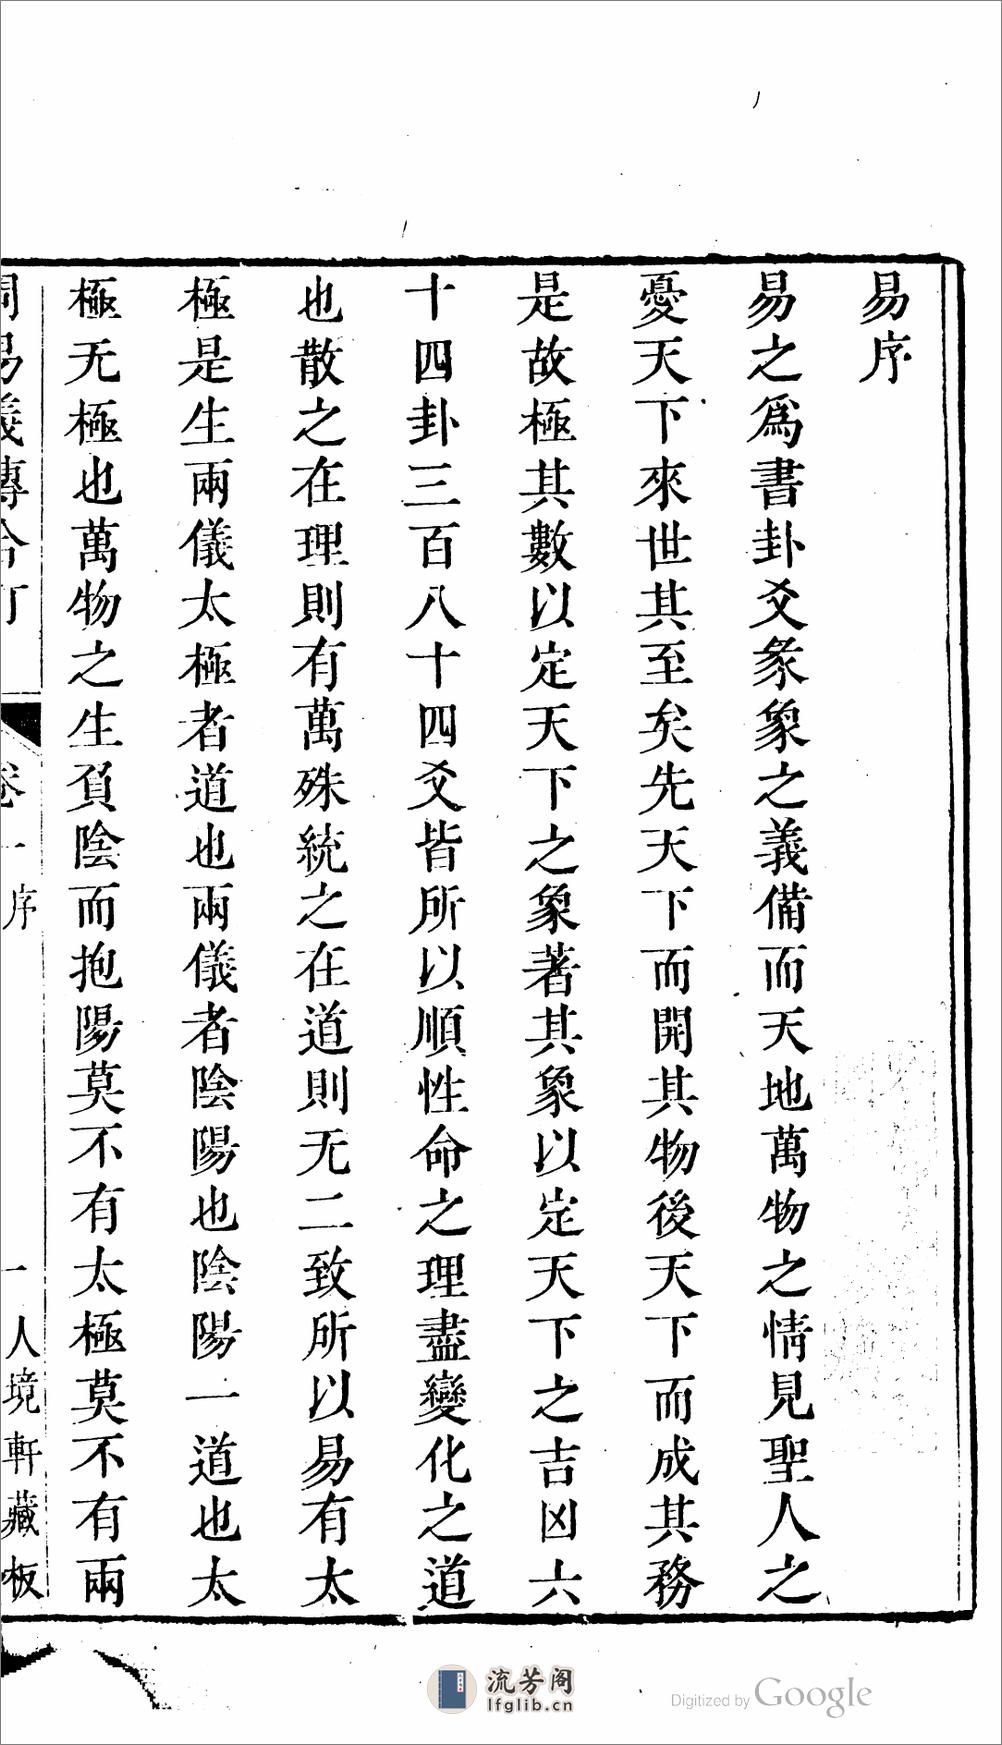 易序
易之爲書卦爻彖象之義備而天地萬物之情見聖人之
憂天下來世其至矣先天下而開其物後天下而成其務
是故極其數以定天下之象著其象以定天下之吉凶六
十四卦三百八十四爻皆所以順性命之理盡變化之道
也散之在理則有萬殊統之在道則无二致所以易有太
極是生兩儀太極者道也兩儀者陰陽也陰陽一道也太
極无極也萬物之生負陰而抱陽莫不有太極莫不有兩
周易義傳合訂 卷一序 一 人境軒藏板
流芳阁
lfglib.cn
Digitized by Google